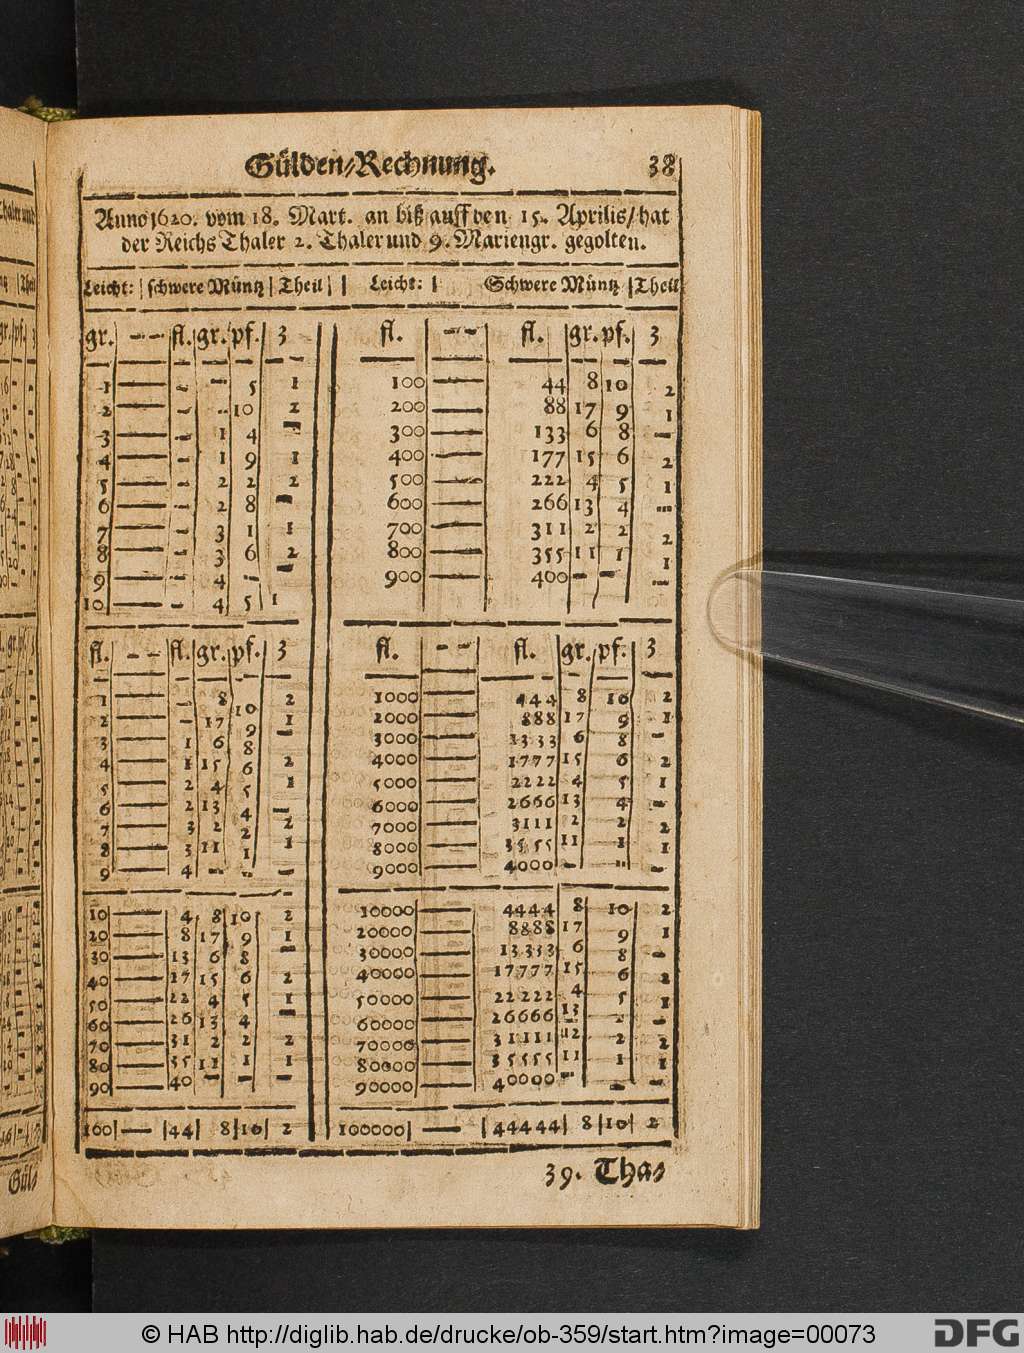 Gülden/Rechnung. 38
Anno 1620. vom 18. Mart. an biß auff den 15. Aprilis/ hat
der Reichs Thaler 2. Thaler und 9. Mariengr. gegolten.
Leicht: | schwere Müntz | Theil | | Leicht: | Schwere Müntz | Theil
gr. — — fl. gr. pf. 3 fl. — — fl. gr. pf. 3
1 — - - 5 1 100 — 44 8 10 2
2 — - - 10 2 200 — 88 17 9 1
3 — - 1 4 - 300 — 133 6 8 -
4 — - 1 9 1 400 — 177 15 6 2
5 — - 2 2 2 500 — 222 4 5 1
6 — - 2 8 - 600 — 266 13 4 -
7 — - 3 1 1 700 — 311 2 2 2
8 — - 3 6 2 800 — 355 11 1 1
9 — - 4 - - 900 — 400 - - -
10 — - 4 5 1
fl. — — fl. gr. pf. 3 fl. — — fl. gr. pf. 3
1 — - 8 10 2 1000 — 444 8 10 2
2 — - 17 9 1 2000 — 888 17 9 1
3 — 1 6 8 - 3000 — 1333 6 8 -
4 — 1 15 6 2 4000 — 1777 15 6 2
5 — 2 4 5 1 5000 — 2222 4 5 1
6 — 2 13 4 - 6000 — 2666 13 4 -
7 — 3 2 2 2 7000 — 3111 2 2 2
8 — 3 11 1 1 8000 — 3555 11 1 1
9 — 4 - - - 9000 — 4000 - - -
10 — 4 8 10 2 10000 — 4444 8 10 2
20 — 8 17 9 1 20000 — 8888 17 9 1
30 — 13 6 8 - 30000 — 13333 6 8 -
40 — 17 15 6 2 40000 — 17777 15 6 2
50 — 22 4 5 1 50000 — 22222 4 5 1
60 — 26 13 4 - 60000 — 26666 13 -
70 — 31 2 2 2 70000 — 31111 2 2
80 — 35 11 1 1 80000 — 35555 11 1 1
90 — 40 - - - 90000 — 40000 - - -
100 — 44 8 10 2 100000 — 44444 8 10 2
39. Tha/
Gül/
© HAB http://diglib.hab.de/drucke/ob-359/start.htm?image=00073
DFG